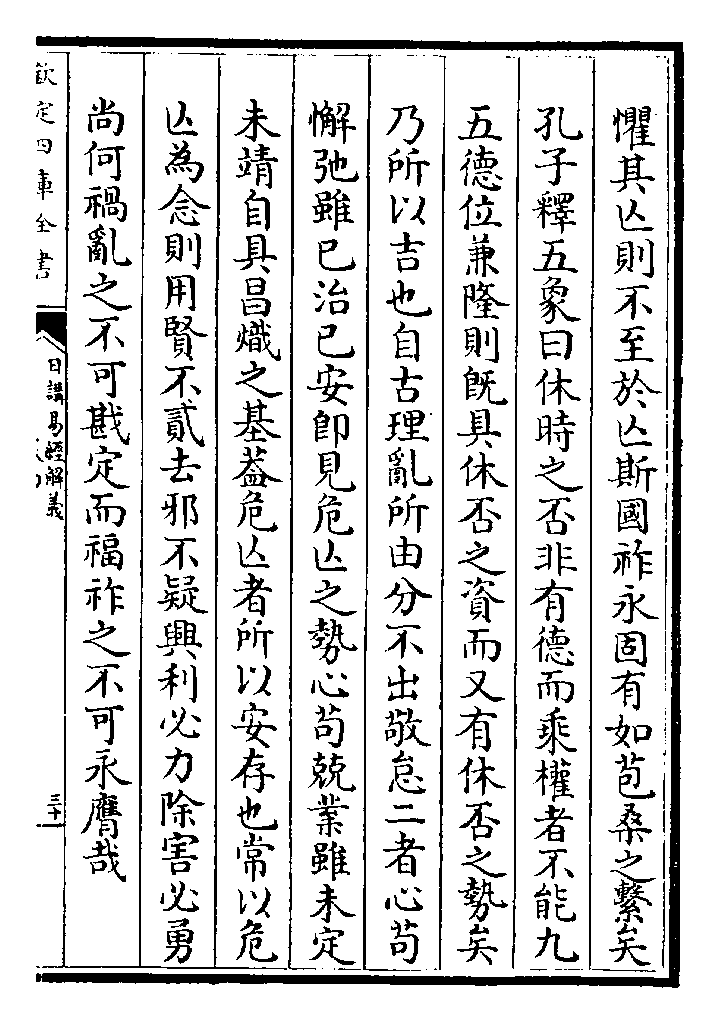 懼其亾則不至於亾斯國祚永固有如苞桑之繫矣
孔子釋五象曰休時之否非有德而乘權者不能九
五德位兼隆則既具休否之資而又有休否之勢矣
乃所以吉也自古理亂所由分不出敬怠二者心苟
懈弛雖已治已安即見危亾之勢心苟兢業雖未定
未靖自具昌熾之基葢危亾者所以安存也常以危
亾為念則用賢不貳去邪不疑興利必力除害必勇
尚何禍亂之不可戡定而福祚之不可永膺哉
欽定四庫全書
日講易經解義
三十